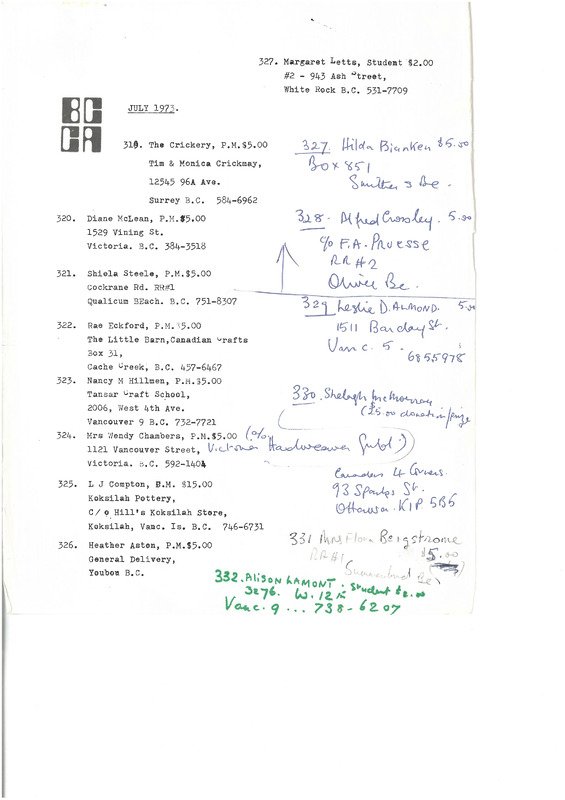 327. Margaret Letts, Student $2.00
#2 - 943 Ash Street,
White Rock B.C. 531-7709
BC
CA
JULY 1973.
318. The Crickery, P.M.$5.00
Tim & Monica Crickmay,
12545 96A Ave.
Surrey B.C. 584-6962
320. Diane McLean, P.M.$5.00
1529 Vining St.
Victoria. B.C. 384-3518
321. Shiela Steele, P.M.$5.00
Cockrane Rd. RR#1
Qualicum BEach. B.C. 751-8307
322. Rae Eckford, P.M.$5.00
The Little Barn,Canadian Crafts
Box 31,
Cache Creek, B.C. 457-6467
323. Nancy M Hillmen, P.M.$5.00
Tansar Craft School,
2006, West 4th Ave.
Vancouver 9 B.C. 732-7721
324. Mrs Wendy Chambers, P.M.$5.00 (c/o
1121 Vancouver Street, Victoria Handweaver Guild.)
Victoria. B.C. 592-1404
325. L J Compton, B.M. $15.00
Koksilah Pottery,
C/o Hill's Koksilah Store,
Koksilah, Vanc. Is. B.C. 746-6731
326. Heather Aston, P.M.$5.00
General Delivery,
Youbou B.C.
327. Hilda $5.00
Box 851
Smithers Bc.
328. Alfred Crossley. 5.00
c/o F.A. Pruesse
RR#2
Oliver Bc.
329 Leslie D. Almond. 5.00
1511 Barclay St.
Vanc. 5.
6855978
330. Shelagh
($5.00 donation/
Canadens 4 Corners.
93 Sparks St.
Ottawa. K1P 5B5
331 Mrs Flora Bergstrome
RR#1 $5.00
Summerland Bc
332. Alison Lamont. Student $2.00
3276. W. 12th
Vanc. 9 ... 738-6207